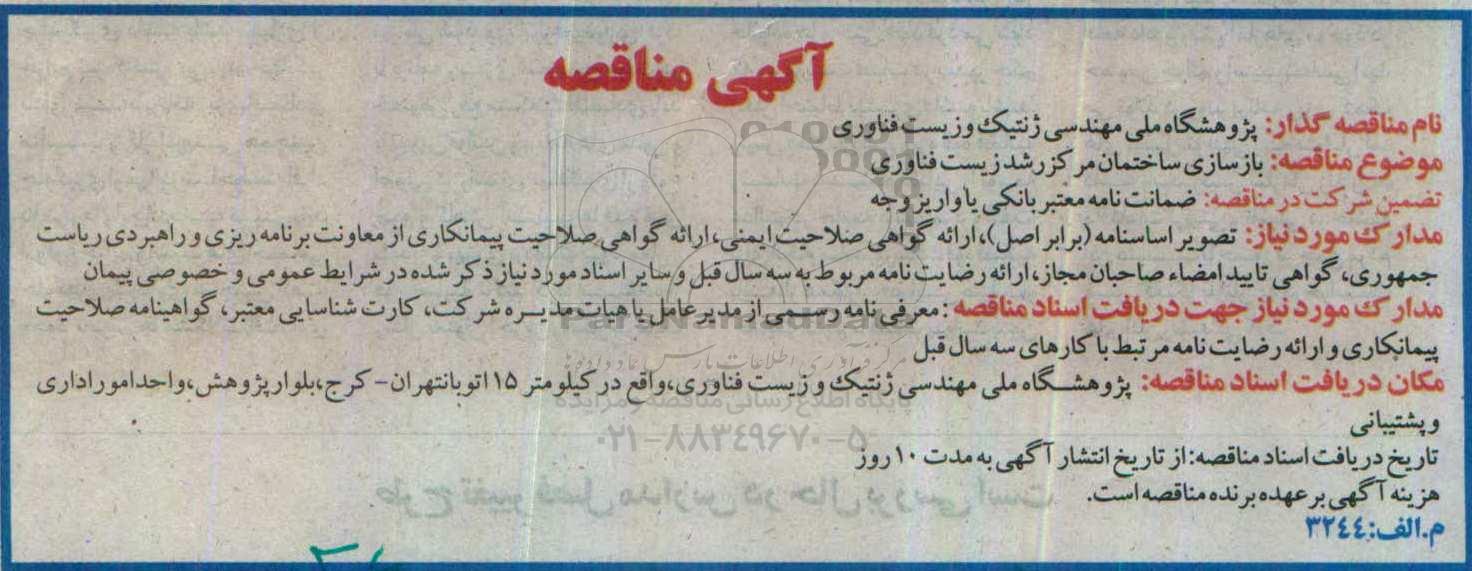 آگهی مناقصه
نام مناقصه گذار: پژوهشگاه ملی مهندسی ژنتیک و زیست فناوری
موضوع مناقصه: بازسازی ساختمان مرکز رشد زیست فناوری
تضمین شرکت در مناقصه: ضمانت نامه معتبر بانکی یا واریز وجه
مدارک مورد نیاز: تصویر اساسنامه (برابر اصل)، ارائه گواهی صلاحیت ایمنی، ارائه گواهی صلاحیت پیمانکاری از معاونت برنامه ریزی و راهبردی ریاست
جمهوری، گواهی تایید امضاء صاحبان مجاز، ارائه رضایت نامه مربوط به سه سال قبل و سایر اسناد مورد نیاز ذکر شده در شرایط عمومی و خصوصی پیمان
مدارک مورد نیاز جهت دریافت اسناد مناقصه: معرفی نامه رسمی از مدیر عامل یا هیات مدیره شرکت، کارت شناسایی معتبر، گواهینامه صلاحیت
پیمانکاری و ارائه رضایت نامه مرتبط با کارهای سه سال قبل
مرکز فرآوری اطلاعات پارس نماد داده‌ها
مکان دریافت اسناد مناقصه: پژوهشگاه ملی مهندسی ژنتیک و زیست فناوری، واقع در کیلومتر ۱۵ اتوبان تهران - کرج، بلوار پژوهش، واحد امور اداری
پایگاه اطلاع رسانی مناقصه و مزایده
و پشتیبانی
۰۲۱-۸۸۳۴۹۶۷۰-۵
تاریخ دریافت اسناد مناقصه: از تاریخ انتشار آگهی به مدت ۱۰ روز
هزینه آگهی بر عهده برنده مناقصه است.
م.الف: ۳۲۴۴